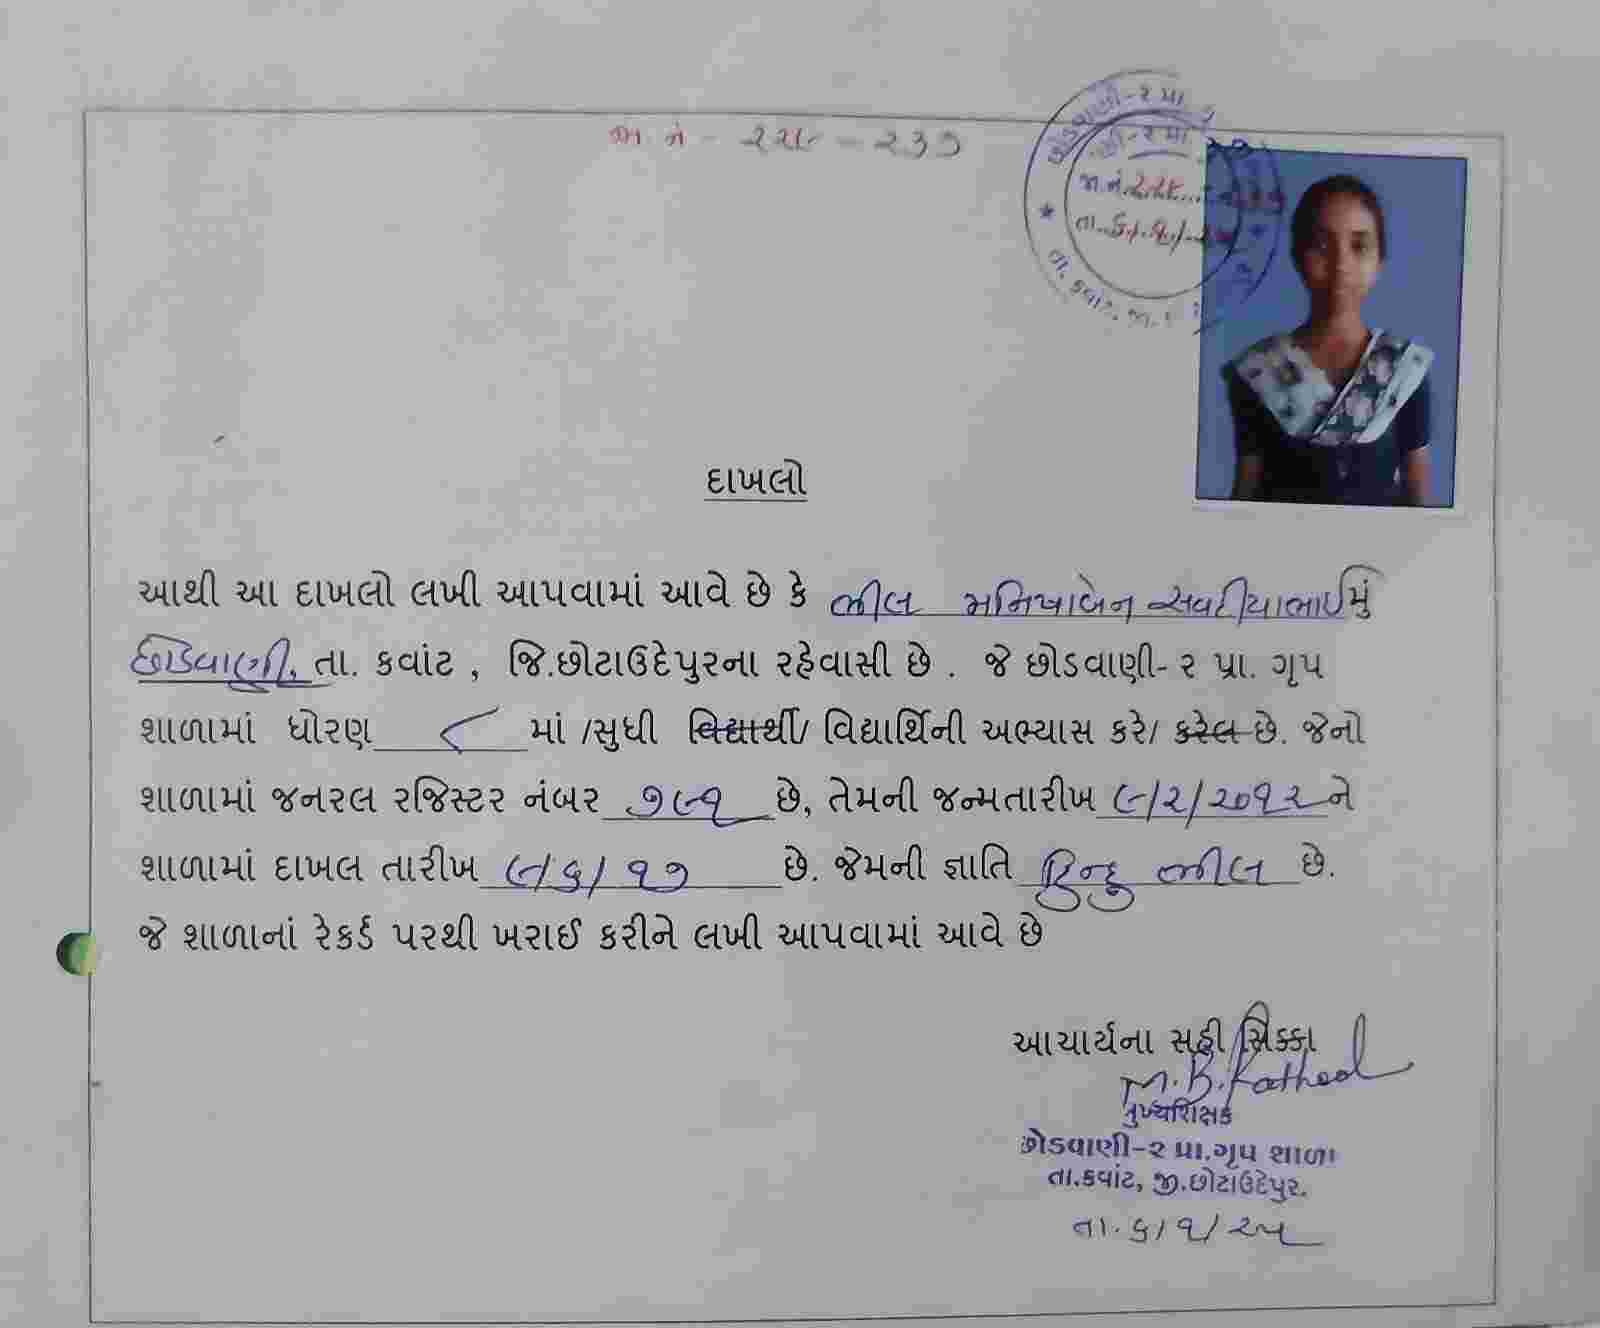 જા.નં - ૨૨૯ - ૨૩૭
છોડવાણી-૨ પ્રા.
જા.નં. ૨૨૯
તા. ૬/૧/
તા. કવાંટ, જી.
દાખલો
આથી આ દાખલો લખી આપવામાં આવે છે કે ભીલ મનિષાબેન મું
છોડવાણી, તા. કવાંટ , જિ.છોટાઉદેપુરના રહેવાસી છે . જે છોડવાણી- ૨ પ્રા. ગૃપ
શાળામાં ધોરણ ૮ માં /સુધી વિદ્યાર્થી/ વિદ્યાર્થિની અભ્યાસ કરે/ કરેલ છે. જેનો
શાળામાં જનરલ રજિસ્ટર નંબર ૭૯૧ છે, તેમની જન્મતારીખ ૯/૨/૨૦૧૨ ને
શાળામાં દાખલ તારીખ ૯/૬/૧૭ છે. જેમની જ્ઞાતિ હિન્દુ ભીલ છે.
જે શાળાનાં રેકર્ડ પરથી ખરાઈ કરીને લખી આપવામાં આવે છે
આચાર્યના સહી સિક્કા
M.B.Rathod
મુખ્યશિક્ષક
છોડવાણી-૨ પ્રા.ગૃપ શાળા
તા.કવાંટ, જી.છોટાઉદેપુર.
તા. ૬/૧/૨૫